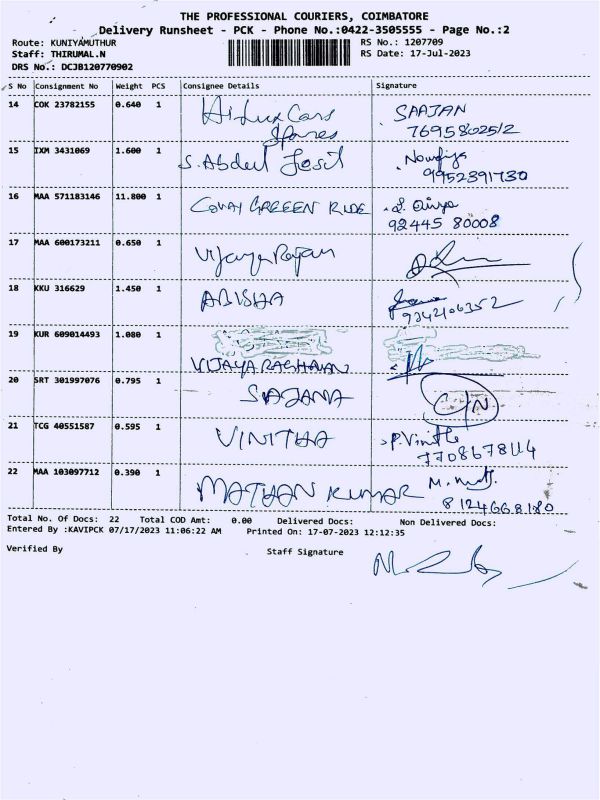 THE PROFESSIONAL COURIERS, COIMBATORE
Delivery Runsheet - PCK - Phone No.:0422-3505555 - Page No.:2
Route: KUNIYAMUTHUR
RS No.: 1207709
Staff: THIRUMAL.N
RS Date: 17-Jul-2023
DRS No.: DCJB120770902
S No Consignment No Weight PCS Consignee Details Signature
14 COK 23782155 0.640 1 Hi Lux Cars SAAJAN
Spares 7695802512
15 IXM 3431069 1.600 1 S. Abdul
9952391730
16 MAA 571183146 11.800 1 COVAI GREEEN RIDE
92445 80008
17 MAA 600173211 0.650 1 Vijaya Rajan
18 KKU 316629 1.450 1 ABISHA
9342106352
19 KUR 609014493 1.080 1
VIJAYA RAGHAVAN
20 SRT 301997076 0.795 1 SAJANA
21 TCG 40551587 0.595 1 VINITHA P. Vinitha
22 MAA 103097712 0.390 1 MATHAN KUMAR
8124668180
Total No. Of Docs: 22 Total COD Amt: 0.00 Delivered Docs: Non Delivered Docs:
Entered By :KAVIPCK 07/17/2023 11:06:22 AM Printed On: 17-07-2023 12:12:35
Verified By Staff Signature